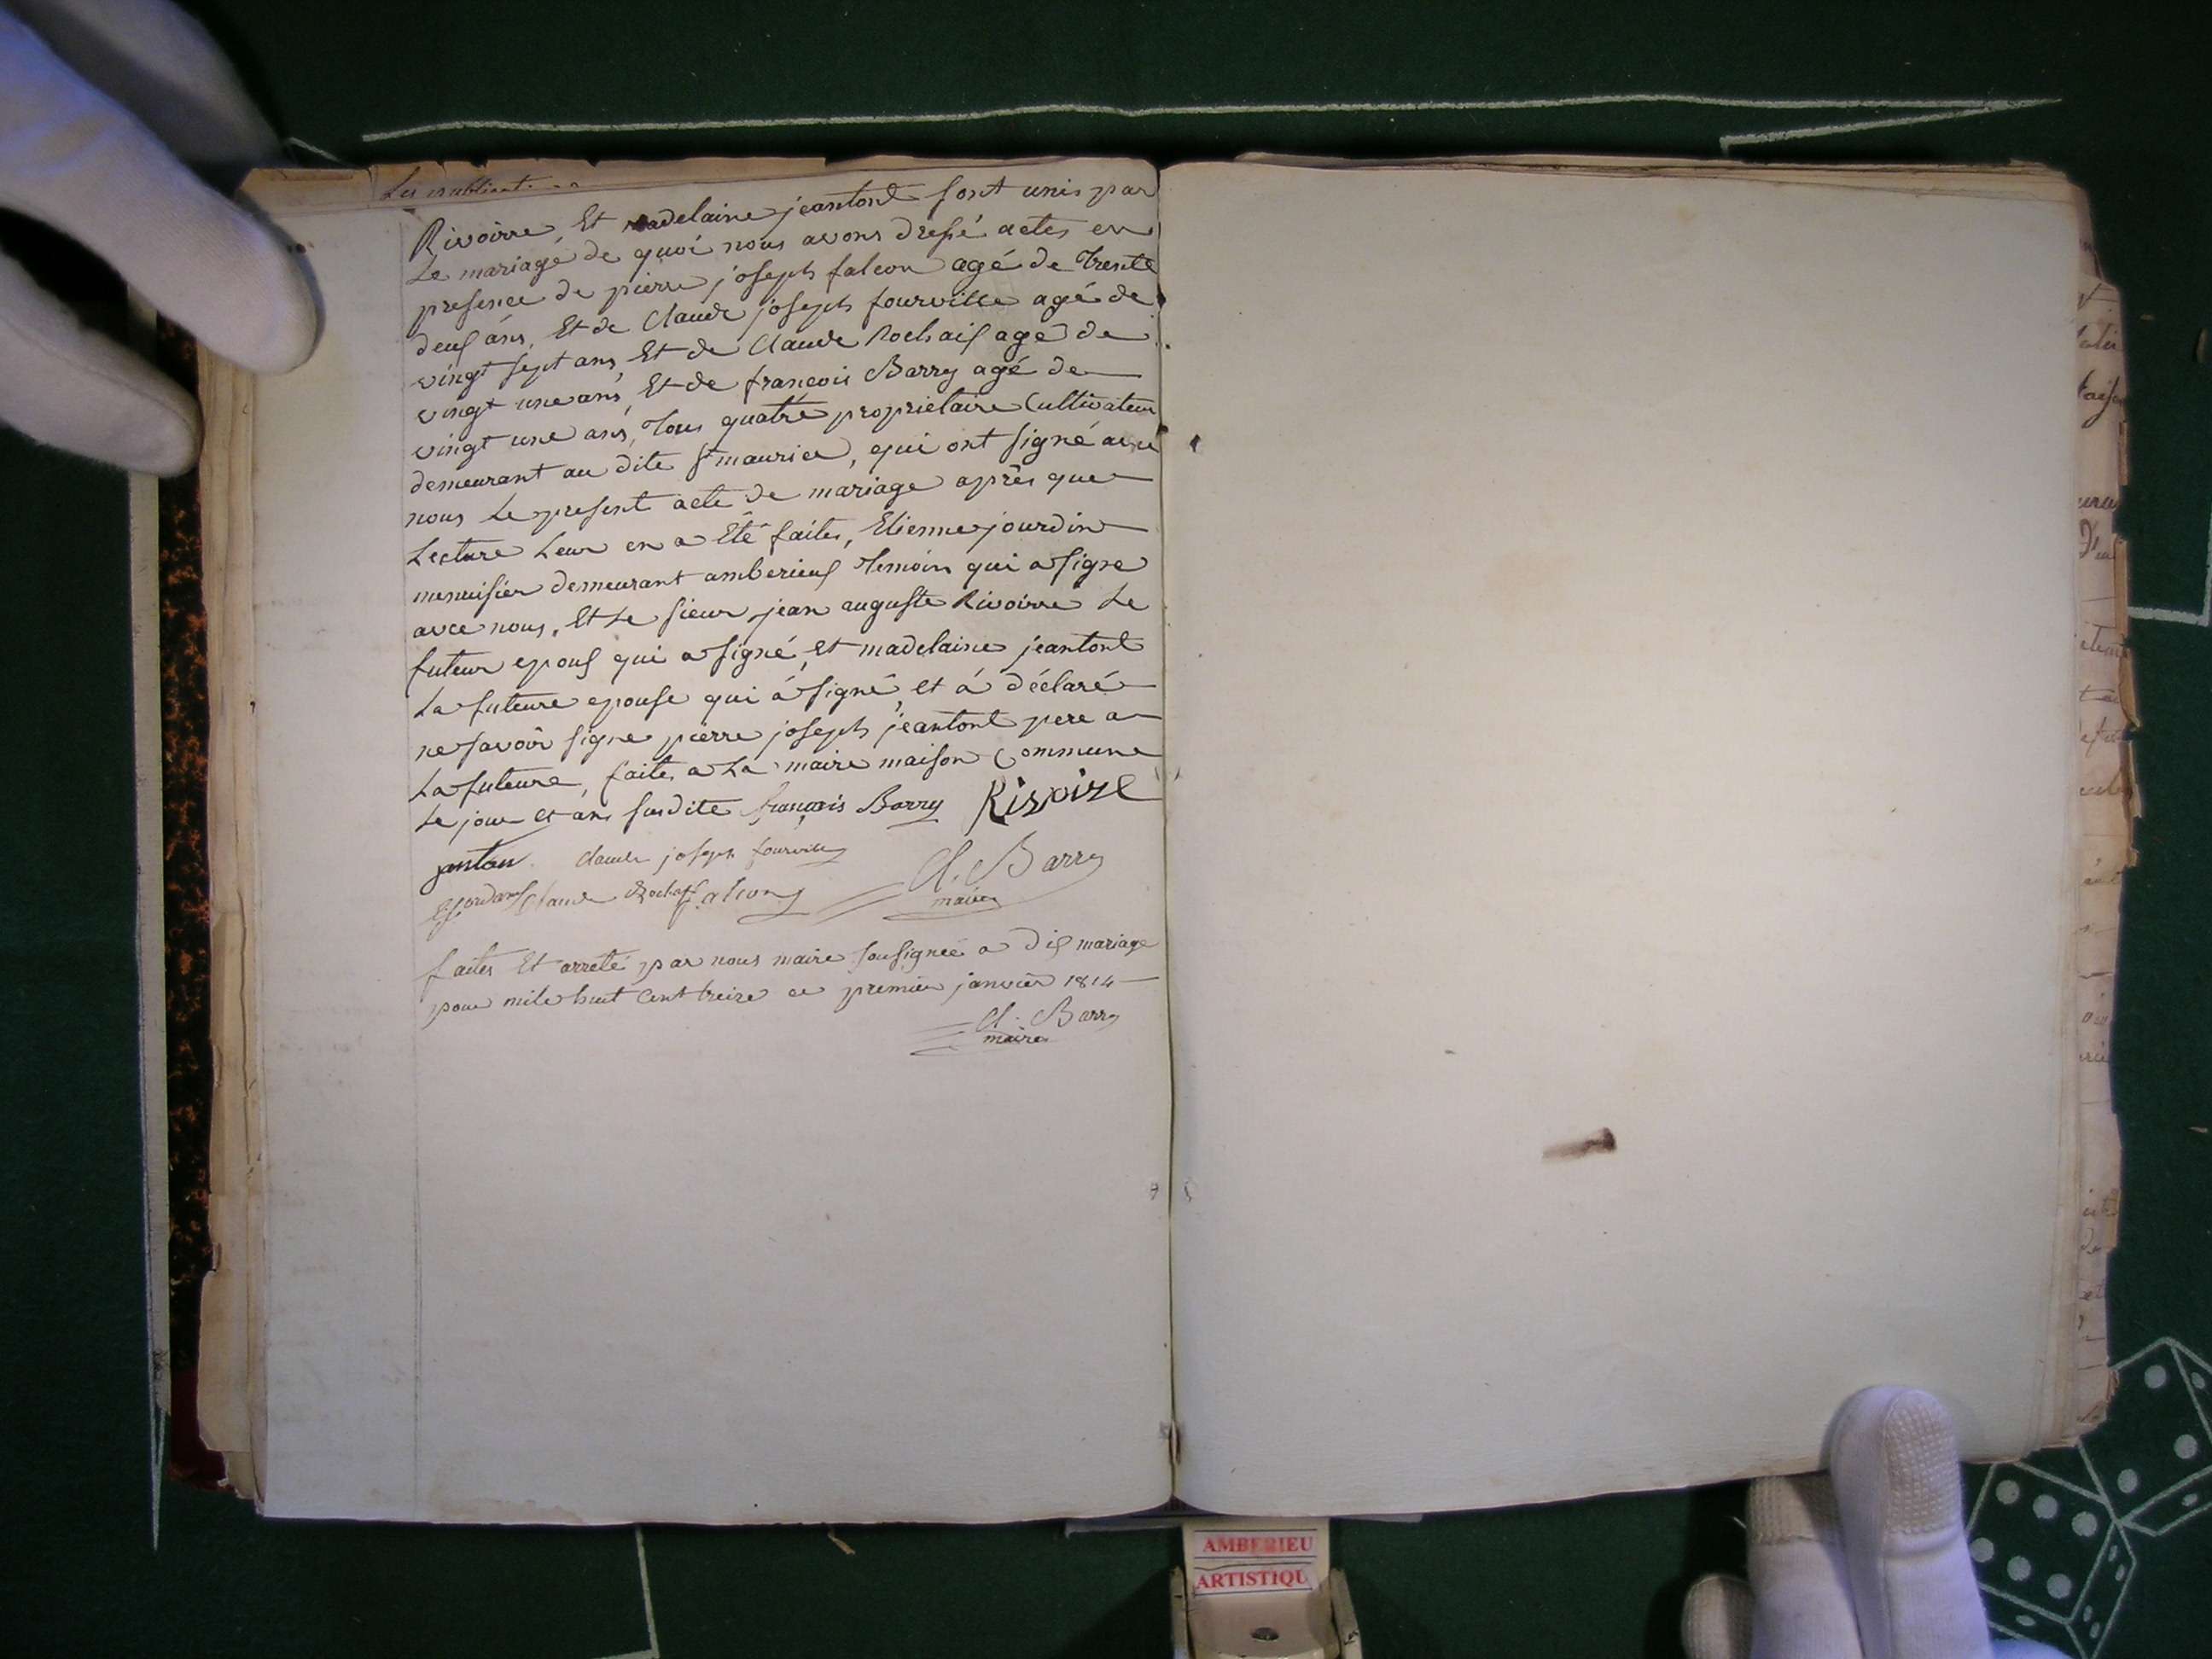 Les publications
Rivoirre, Et madelaine jeantont sont unis par
Le mariage de quoi nous avons dressé actes en
presence de pierre joseph falcon agé de Trente
deux ans, Et de Claude joseph fourville agé de
vingt sept ans, Et de Claude Rochaix agé de
vingt une ans, Et de françois Barry agé de
vingt une ans, Tous quatre proprietaire Cultivateur
demeurant au dite St maurice, qui ont signé avec
nous Le present acte de mariage après que
Lecture Leur en a Eté faites, Etienne jourdin
menuisier demeurant amberieux Temoin qui a signe
avec nous, Et Le sieur jean auguste Rivoirre Le
futeur epoux qui a signé, et madelaine jeantont
La futeure epouse qui á signé, et á déclaré
ne savoir signe pierre joseph jeantont pere a
La futeure, faites a La maire maison Commune
Le jour et ans susdite françois Barry Rivoire
jantau Claude joseph fourville
Cl. Barry
Claude falcon
maire
faites Et arreté par nous maire sousignée a dix mariage
pour mile huit Cent treize ce premier janvier 1814
Cl. Barry
maire
AMBERIEU
ARTISTIQU